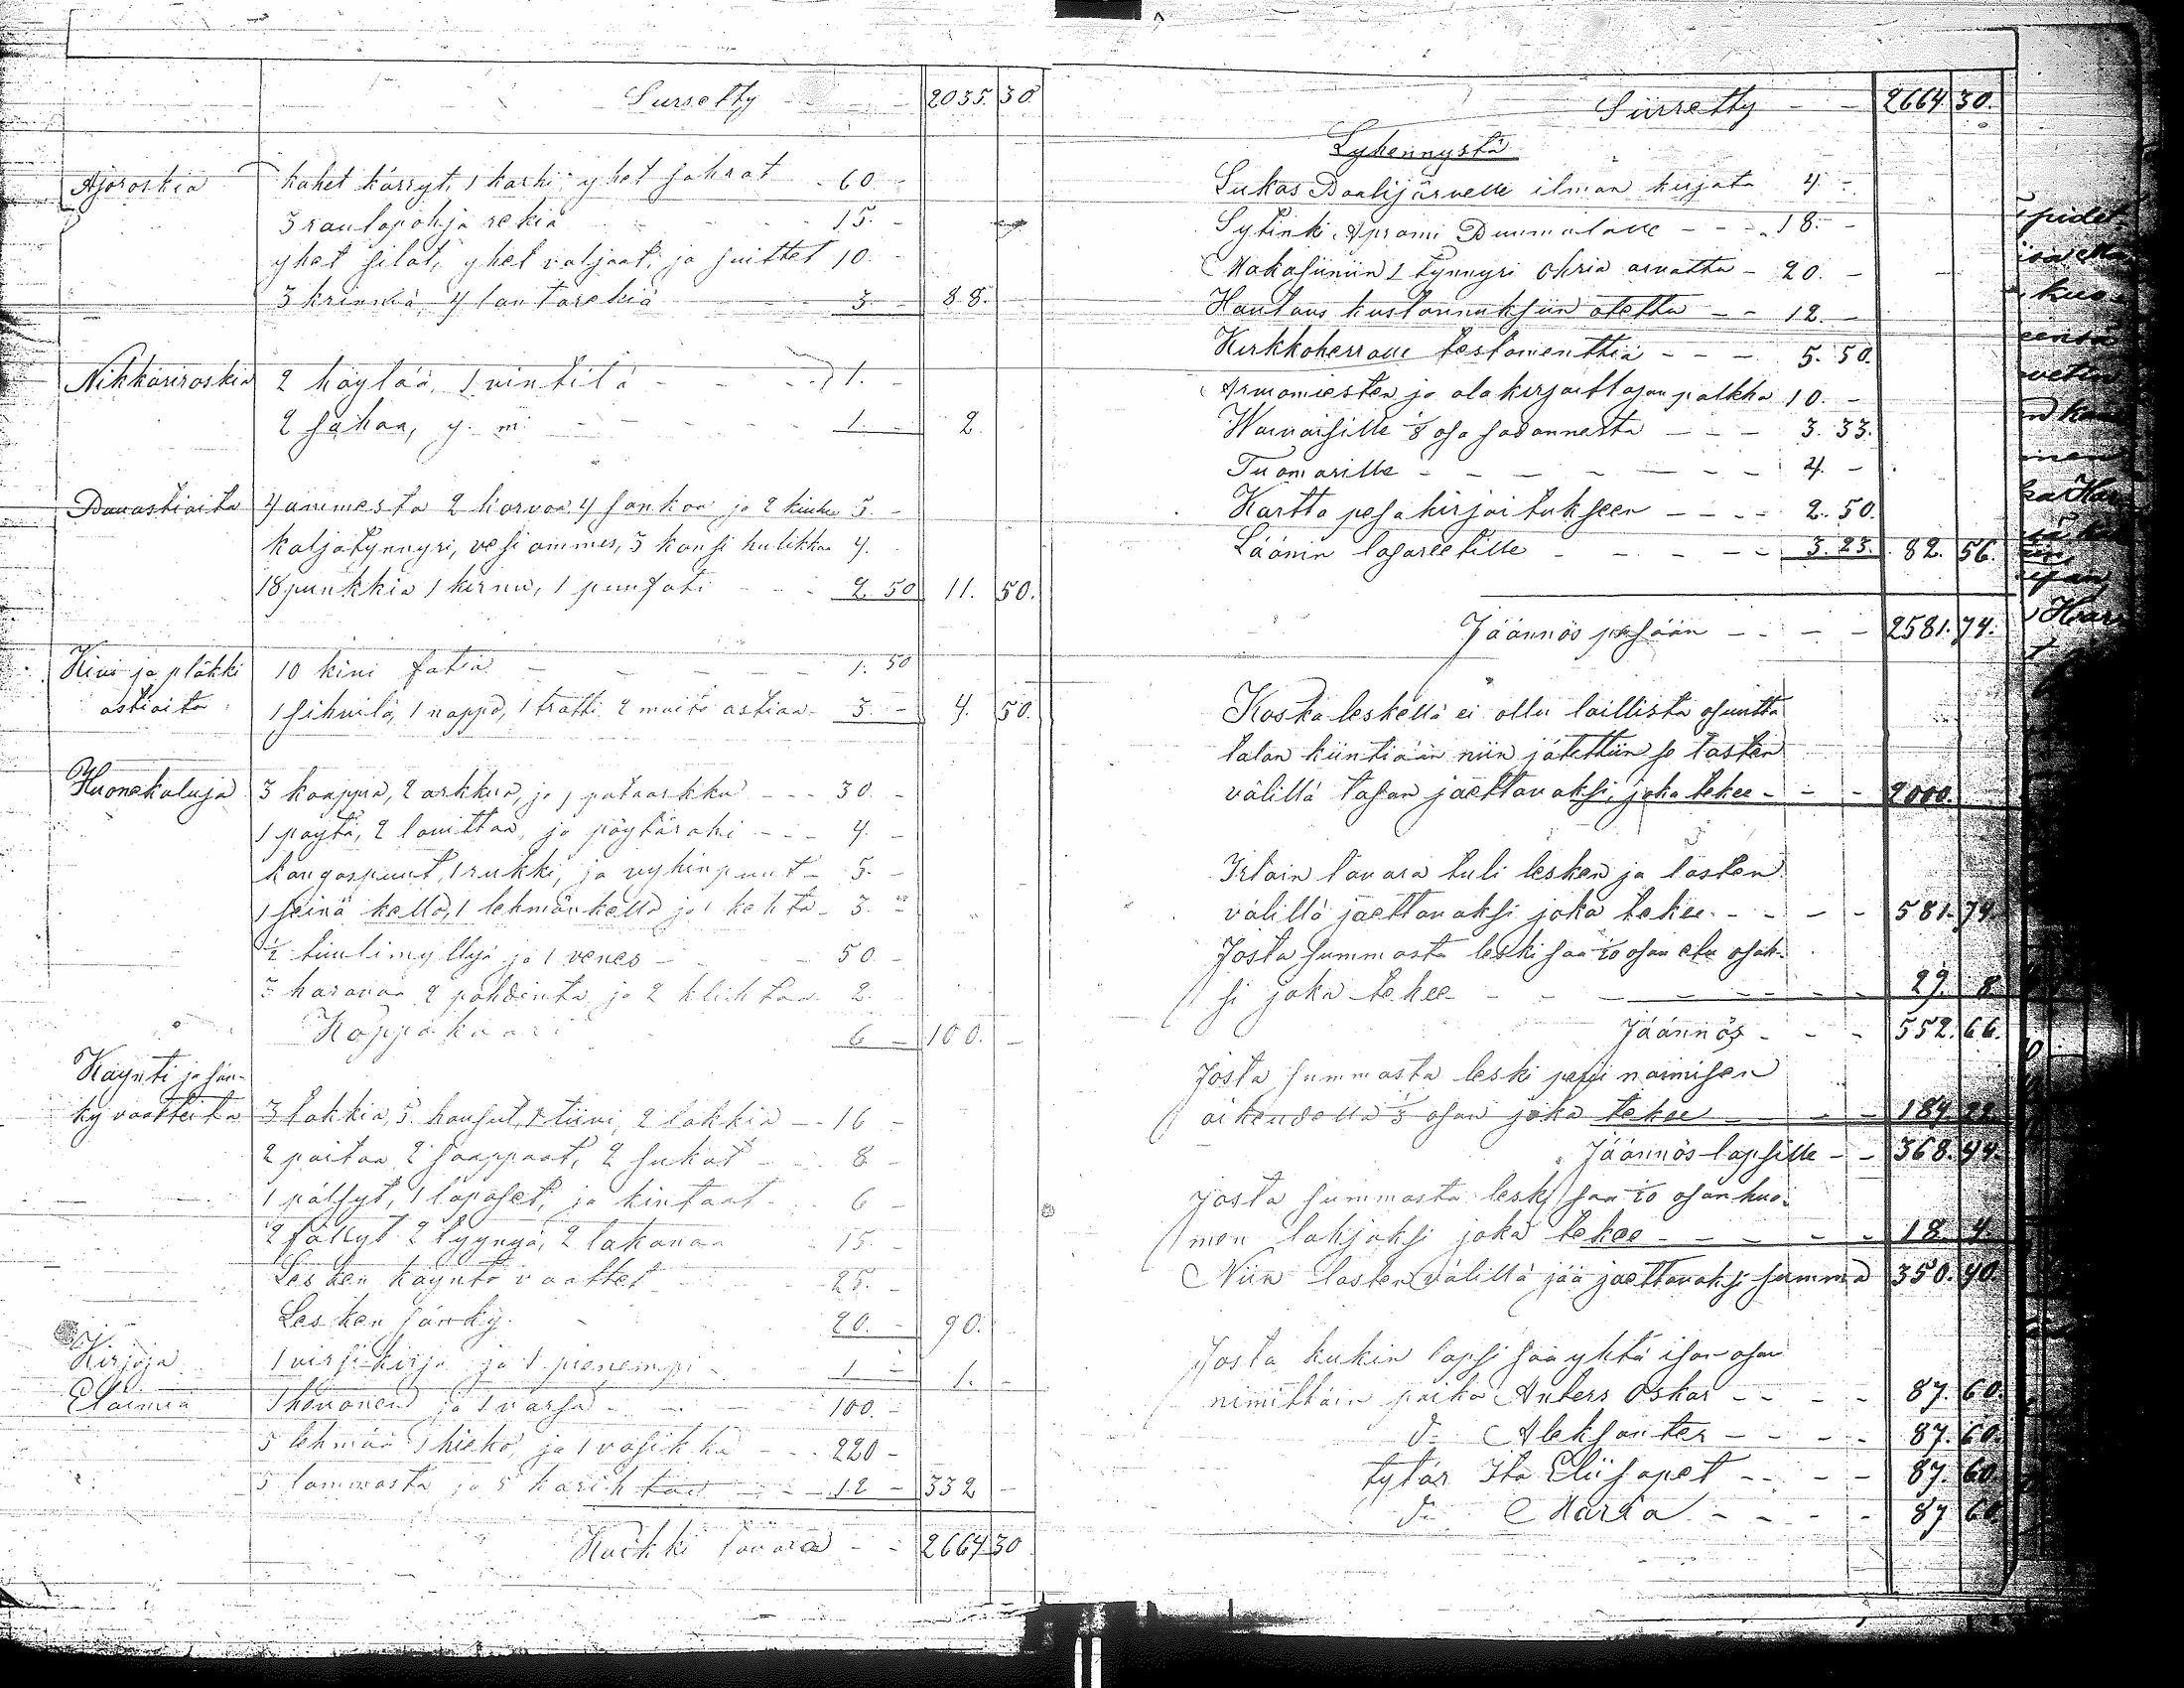 Siirretty - - 2035. 30.
Ajoroskia kahet kärryt, 1 karhi, yhet sahrat . 60 -
3 rautapohja rekiä 15. -
yhet silat, yhet valjaat, ja suittet 10. -
3 4 lantarekiä 3. - 88.
Nikkariroskia 2 höylää, 1 vintilä - - 1. -
2 sahaa, y. m. - - - 1. - 2.
Puuastioita 4 ammesta 2 korvoa 4 sankoa ja 2 5. -
kaljatynnyri, vesi ammes, 3 kansi kulikkaa 4.
18 punkkia 1 kirnu, 1 puufati - - - 2. 50 11. 50.
Kivi ja pläkki 10 kivi fatia - - - - 1. 50
astioita 1 sihvilä, 1 nappo, 1 tratti 2 muita astiaa - 3. - 4. 50.
Huonekaluja 3 kaappia, 2 arkkua, ja 1 - - - 30. -
1 pöytä, 2 lavittaa, ja pöytärahi - - - 4. -
kangaspuut, 1 rukki, ja vyhinpuut - 5. -
1 seinä kello, 1 lehmänkello ja 1 kehto - 3. -
½ tuulimyllyä ja 1 venes - - - 50. -
3 haravaa 2 pohdinta ja 2 klichtaa 2.
Koppakaari 6 - 100. -
Käynti ja sän-
kyvaatteita 3 takkia, 5 housut, 1 liivi, 2 lakkia - . 16 -
2 paitaa 2 saappaat, 2 sukat - . . 8 -
1 pälsyt, 1 lapaset, ja kintaat . . 6 -
2 fällyt 2 tyynyä, 2 lakanaa - 15. -
Lesken käynto vaattet - - 25. -
Lesken sänky. - 20. - 90.
Kirjoja 1 virsikirja ja 1 pienempi - 1 - 1. -
Eläimiä 1 hevonen ja 1 varsa - - - 100. -
5 lehmää 1 hieho, ja 1 vasikka - - - 220 -
5 lammasta ja 5 - - 12 - 332 -
Kaikki tavara - - 2664. 30
Siirretty - - 2664. 30.
Lyhennystä
Lukas Paalijärvelle ilman kirjata 4. -
Aprami - - - 18. -
Makasiiniin 1 tynnyri Ohria arvattu - 20. -
Hautaus kustannuksiin otettu - - 12. -
Kirkkoherralle testamenttiä - - - 5. 50.
Arvomiesten ja alakirjoittajan palkka 10. -
Waivaisille ⅛ osa sadannesta - - - 3. 33.
Tuomarille - - - - - - - 4. -
Kartta pesäkirjoitukseen - - - - 2. 50.
Läänin lasareetille - - - - - 3. 23. 82. 56.
Jäännös pesään - - - - 2581. 74.
Koska leskellä ei ollu laillista osuutta
talon kiintiään niin jätettiin se lasten
välillä tasan jaettavaksi, joka tekee - - - 2000.
Irtain tavara tuli lesken ja lasten
välillä jaettavaksi joka tekee - - - - 581. 74.
Josta summasta leski saa 1/20 osan etu osak-
si joka tekee - - - - - - - 29. 8.
Jäännös - - - 552. 66.
Josta summasta leski naimisen
oikeudella ⅓ osan joka tekee - - - 184. 22.
Jäännös lapsille - - 368. 44.
Josta summasta leski saa 1/20 osan huo-
men lahjaksi joka tekee - - - - - 18. 4.
Niin lasten välillä jää jaettavaksi summa 350. 40.
Josta kukin lapsi saa yhtä ison osan
nimittäin poika Anters Oskar - - - - 87. 60.
d:o Aleksanter - - - - 87. 60.
tytär Ita Eliisapet - - - - 87. 60.
d:o Maria - - - - 87 60.